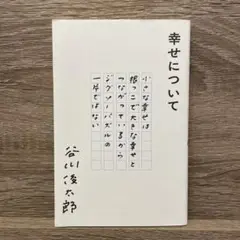 幸せについて
小さな幸せは
根っこで大きな幸せと
つながっているから
ジグソーパズルの
一片ではない
谷川俊太郎